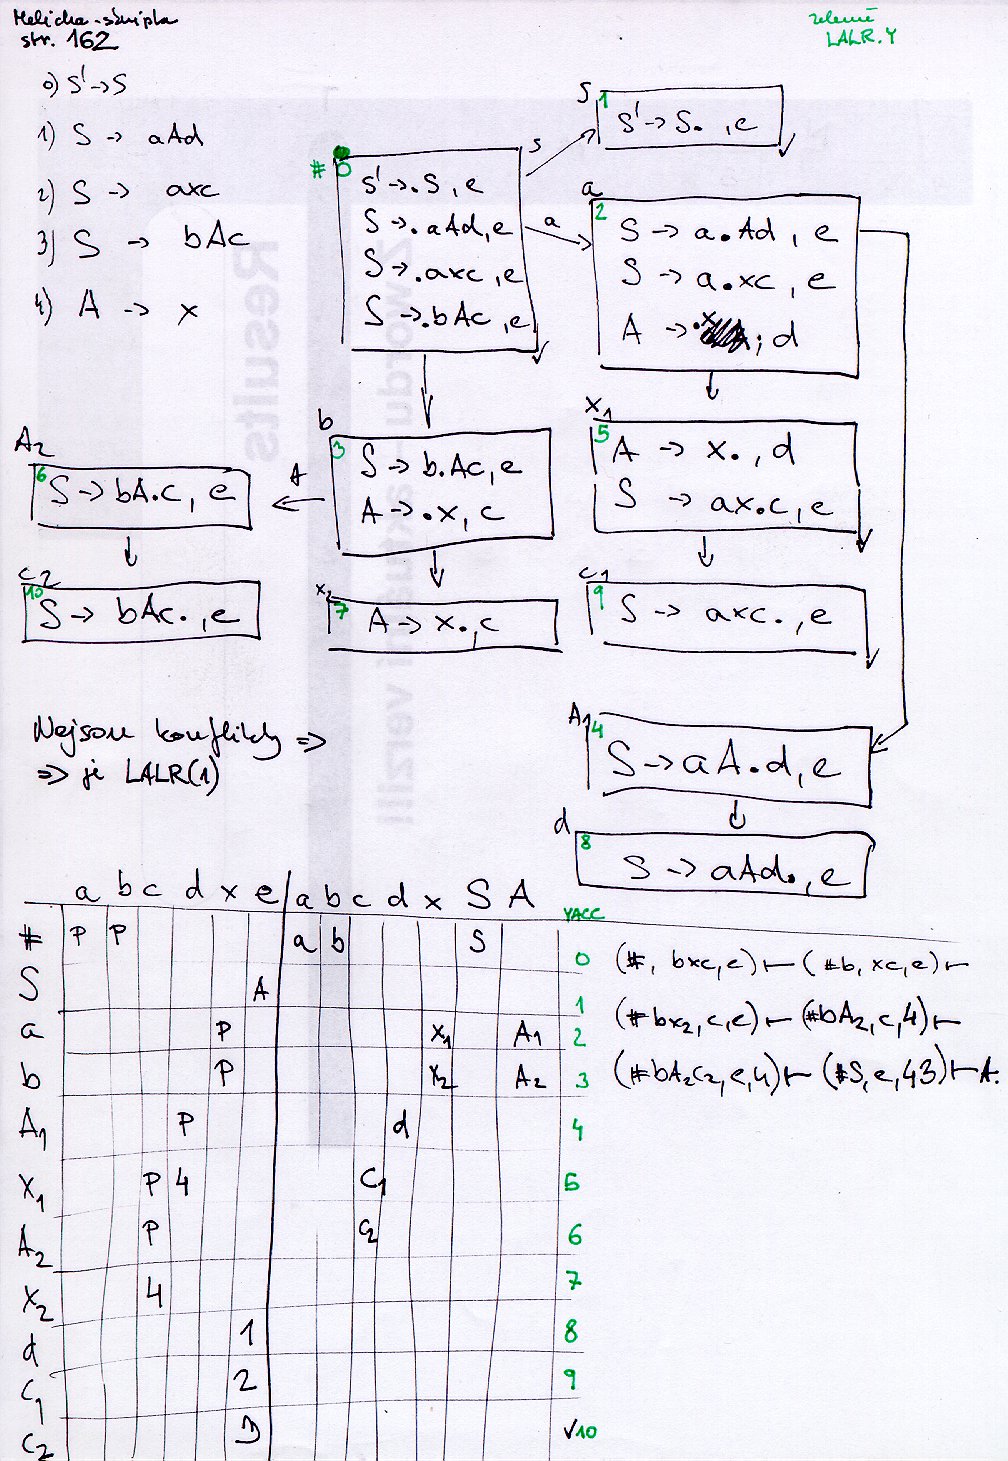 Melichar-skripta
str. 162
zeleně
LALR.Y
0) S' -> S
1) S -> aAd
2) S -> axc
3) S -> bAc
4) A -> x
# 0
S' -> .S, e
S -> .aAd, e
S -> .axc, e
S -> .bAc, e
s
a
S 1
S' -> S. , e
a 2
S -> a.Ad, e
S -> a.xc, e
A -> .x, d
b 3
S -> b.Ac, e
A -> .x, c
A
x₁ 5
A -> x. , d
S -> ax.c, e
A₂ 6
S -> bA.c, e
c2 10
S -> bAc. , e
x₂ 7
A -> x. , c
c1 9
S -> axc. , e
A₁ 4
S -> aA.d, e
d 8
S -> aAd. , e
Nejsou konflikty =>
=> je LALR(1)
a b c d x e a b c d x S A YACC
# P P a b S 0
S A 1
a P x₁ A₁ 2
b P x₂ A₂ 3
A₁ P d 4
x₁ P 4 c₁ 5
A₂ P c₂ 6
x₂ 4 7
d 1 8
c₁ 2 9
c₂ 3 10
(#, bxc, e) ⊢ (#b, xc, e) ⊢
(#bx₂, c, e) ⊢ (#bA₂, c, 4) ⊢
(#bA₂c₂, e, 4) ⊢ (#S, e, 43) ⊢ A.
Results